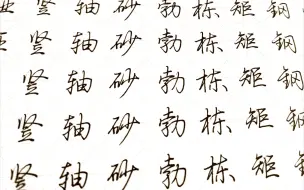 竖 轴 砂 勃 栋 矩 钢
竖 轴 砂 勃 栋 矩 钢
竖 轴 砂 勃 栋 矩 钢
竖 轴 砂 勃 栋 矩 钢
竖 轴 砂 勃 栋 矩